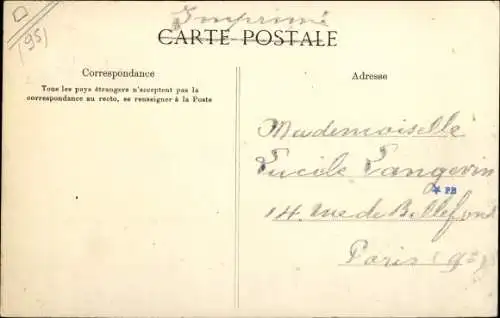 Imprimé
(95)
CARTE POSTALE
Correspondance
Tous les pays étrangers n'acceptent pas la
correspondance au recto, se renseigner à la Poste
Adresse
Mademoiselle
Lucile Langevin
PB
14. rue de Bellefond
Paris (9e)